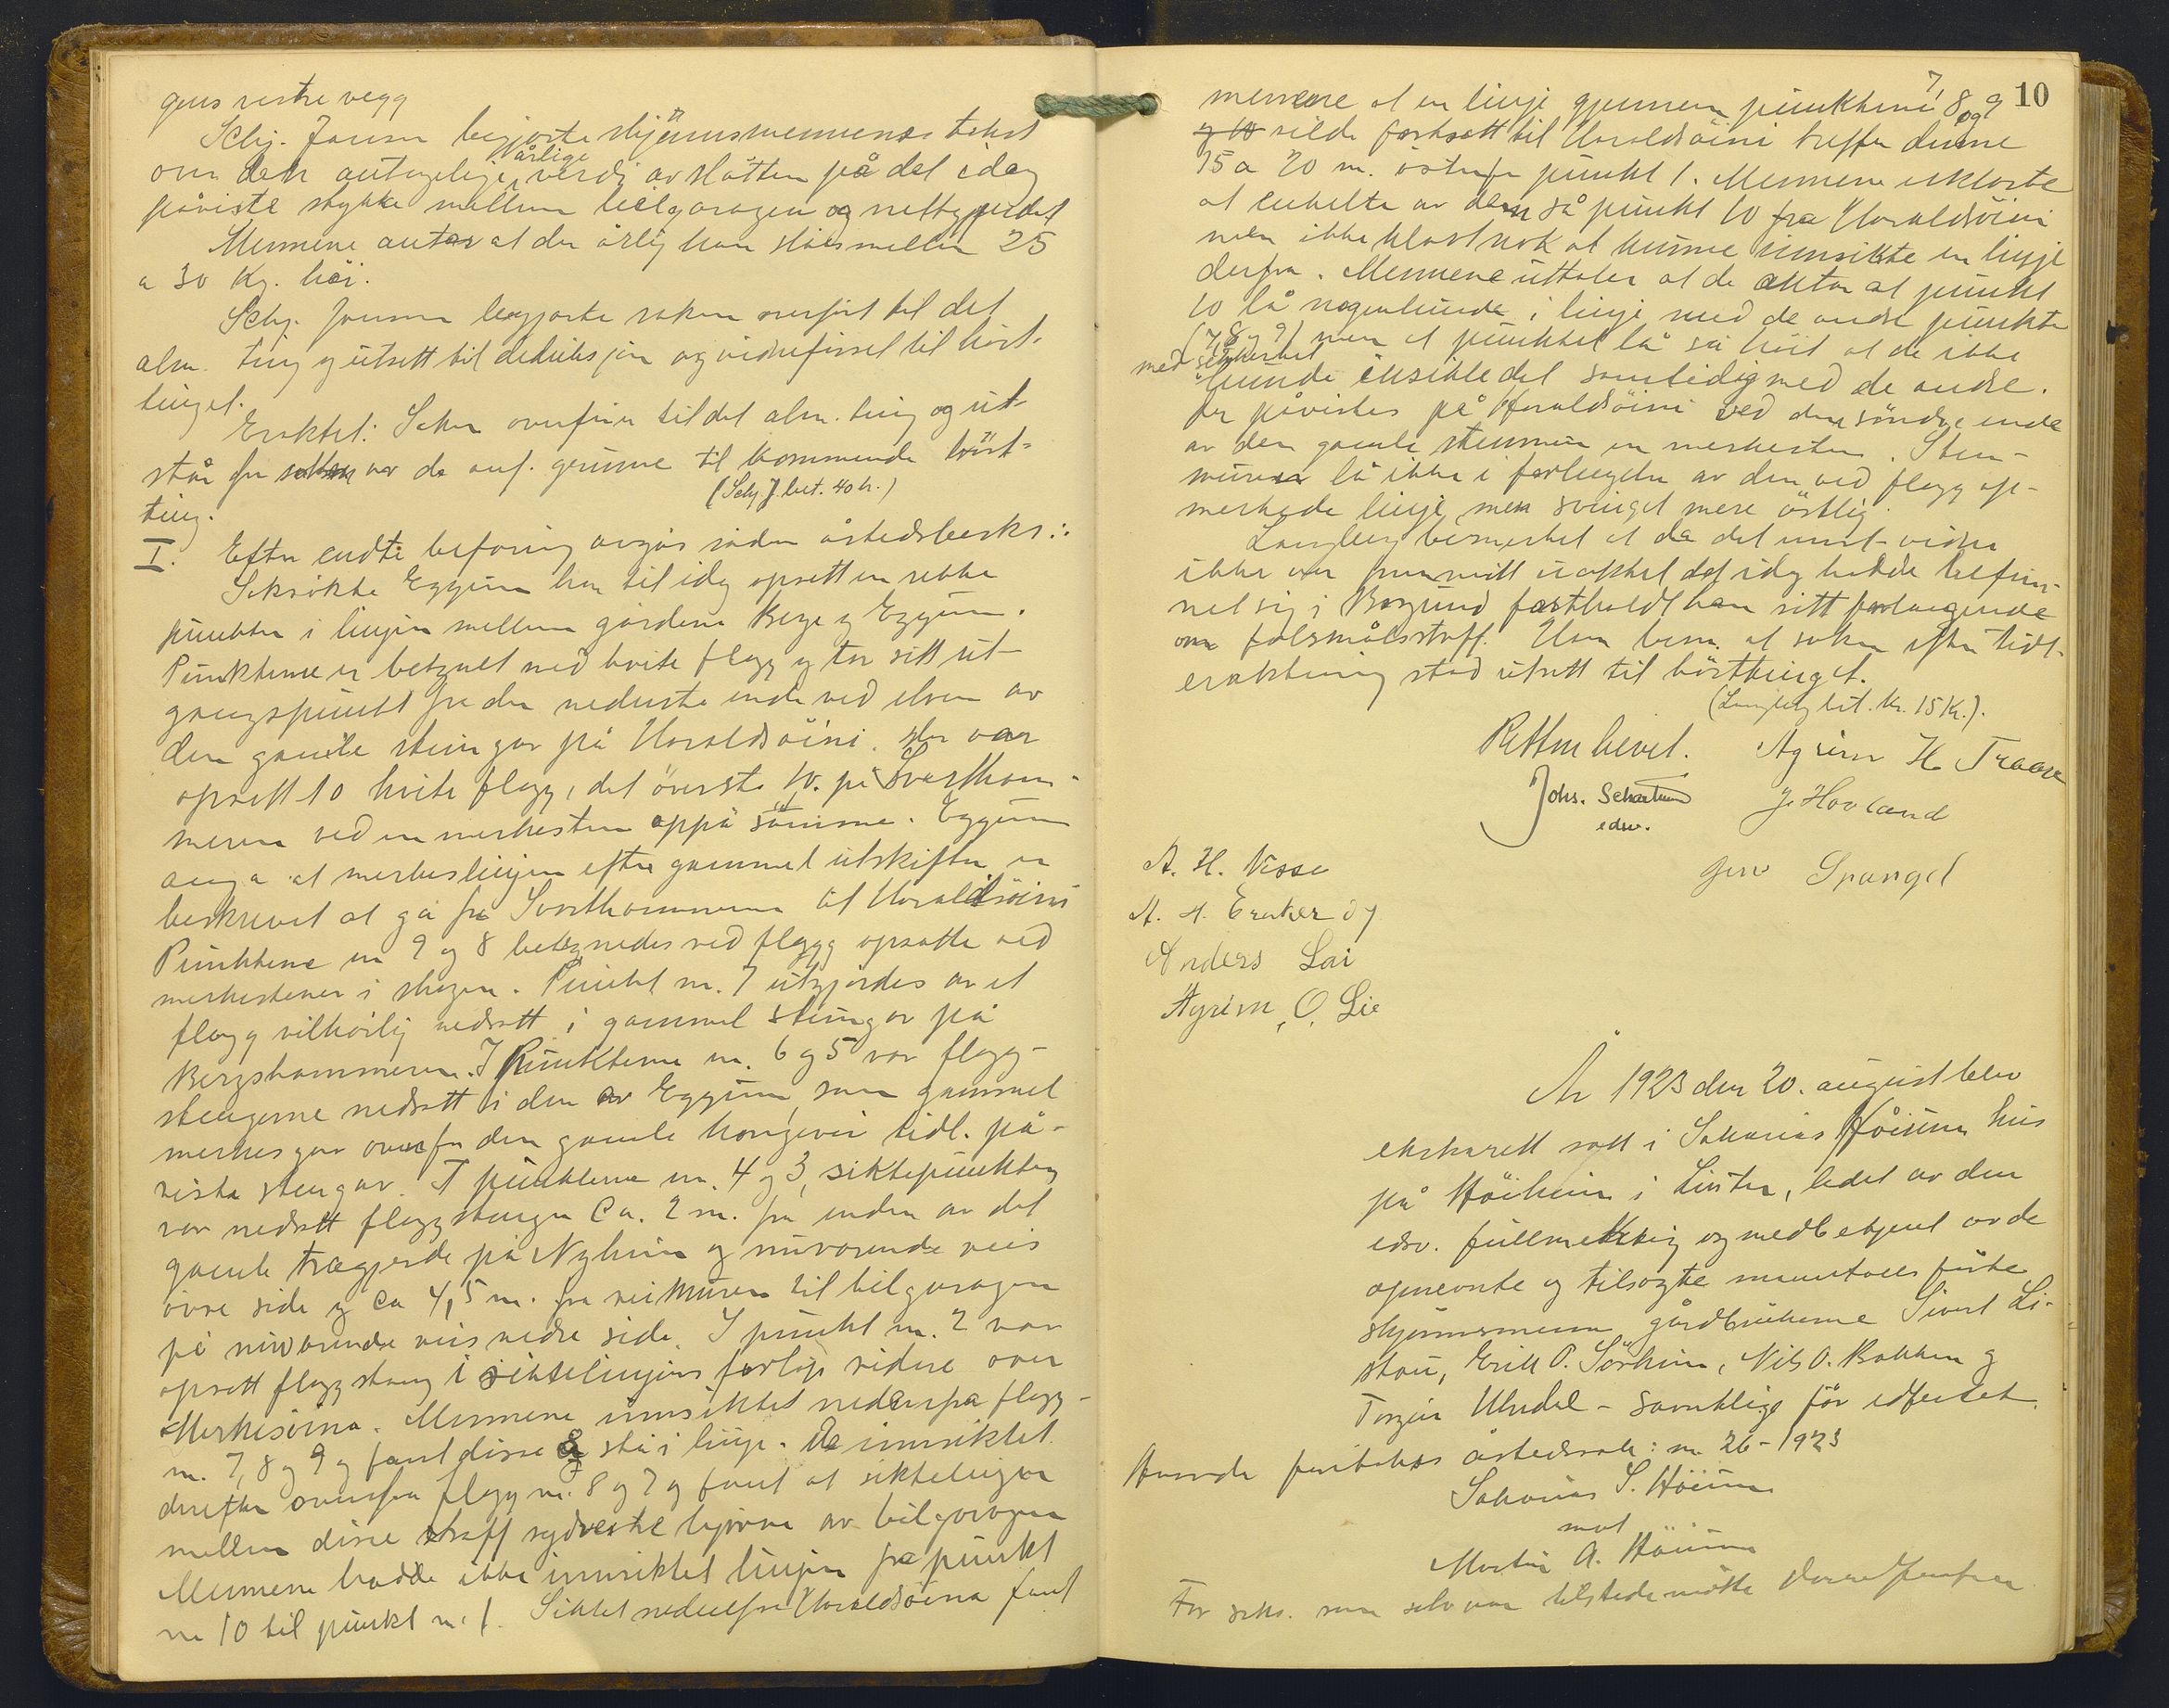 gens vestre vegg
Schj. Jonson begjærte skjønnsmennenes takst
over den antagelige årlige verdi av slåtten på det idag
påviste stykke mellem bilgaragen og nettgjerdet
Mennene antar at der årlig kan slåes mellem 25
a 30 Kg. høi.
Schj. Jonson begjærte saken overført til det
alm. ting og utsatt til deduksjon og vidneførsel til høst-
tinget.
Eraktet: Saken overføres til det alm. ting og ut-
står for saken var de anf. grunne til kommende höst-
ting.
(Schj. J. bet. 40 kr.)
I. Efter endte befaring avgås sådan åstedsbeskr.:
Saksøkte Eggum har til idag opsatt en rekke
punkter i linjen mellem gårdene Berge og Eggum.
Punktene er betegnet med hvite flagg og tar sitt ut-
gangspunkt fra den nederste ende ved elven av
den gamle steingar på Haraldsöini. Der var
opsatt 10 hvite flagg, det överste 10. på Svartham-
meren ved en merkesten oppå samme. Eggum
anga at merkeslinjen efter gammel utskiftn. er
beskrevet at gå fra Svarthammeren til Haraldsöini
Punktene nr 9 og 8 betegnedes ved flagg opsatte ved
merkestener i skogen. Punkt nr. 7 utgjordes av et
flagg vilkårlig nedsatt i gammel steingar på
Bergshammeren. I Punktene nr. 6 og 5 var flagg-
stengerne nedsatt i den av Eggum, som gammel
merkesgar ovenfor den gamle kongevei tidl. på-
viste stengar. I punktene nr. 4 og 3, siktepunkter,
var nedsatt flaggstenger Ca. 2 m. fra enden av det
gamle trægjerde på Nyheim og nuværende veis
övre side og ca 4,5 m. fra veimuren til bilgaragen
på nuværende veis nedre side. I punkt nr. 2 var
opsatt flaggstang i siktelinjens forløp videre over
Merkisöina. Mennene innsiktet nedenfra flagg-
nr. 7, 8 og 9 og fant disse å stå i linje. De innsiktet
derefter ovenfra flagg nr. 8 og 7 og fant at siktelinjen
mellem disse traff sydvestre hjörne av bilgaragen
Mennene hadde ikke innsiktet linjen fra punkt
nr 10 til punkt nr. 1. Siktet nedenfra Haraldsöina fant
10
mennene at en linje gjennem punktene 7, 8 og 9
og 10 vilde fortsatt til Haraldsöini treffe denne
15 a 20 m. östenfor punkt 1. Mennene erklærte
at enkelte av dem så punkt 10 fra Haraldsöini
men ikke klart nok at kunne innsikte en linje
derfra. Mennene uttaler at de antar at punkt
10 lå nogenlunde i linje med de andre punkter
(7, 8 og 9) men at punktet lå så höit at de ikke
med sikkerhet kunde innsikte det samtidig med de andre.
Der påvistes på Haraldsöini ved den söndre ende
av den gamle stenmur en merkesten. Sten-
muren lå ikke i forlengelse av den ved flagg op-
merkede linje, men svinget mere östlig.
Langberg bemerket at da det innst. vidne
ikke var fremmött uaktet det idag hadde befun-
net sig i Borgund fastholdt han sitt forlangende
om falsmålsstraff. Han bem. at saken efter tidl.
eraktning stod utsatt til hösttinget.
(Langberg bet. kr. 15 Kr.).
Retten hevet. Agrim H Traaen
Johs. Schartum J. Hovland
edsv.
Jens Spangel
A. H. Vesse
A. H. Eraker
Anders Lai
Agrim O. Lie
År 1923 den 20. august blev
ekstrarett satt i Sakarias Höiums hus
på Höiheim i Luster, ledet av den
edsv. fullmektig og medbetjent av de
opnevnte og tilsagte mantalls förte
skjönnsmenn gårdbrukerne Sivert Li-
stau, Erik O. Sörheim, Nils O. Bakken og
Torgeir Uhdal - samtlige för edfestet.
Hvorda foretokes åstedssak: nr 26-1923
Sakarias S. Höium
mot
Martin A. Höium
For saks. som selv var tilstede mötte